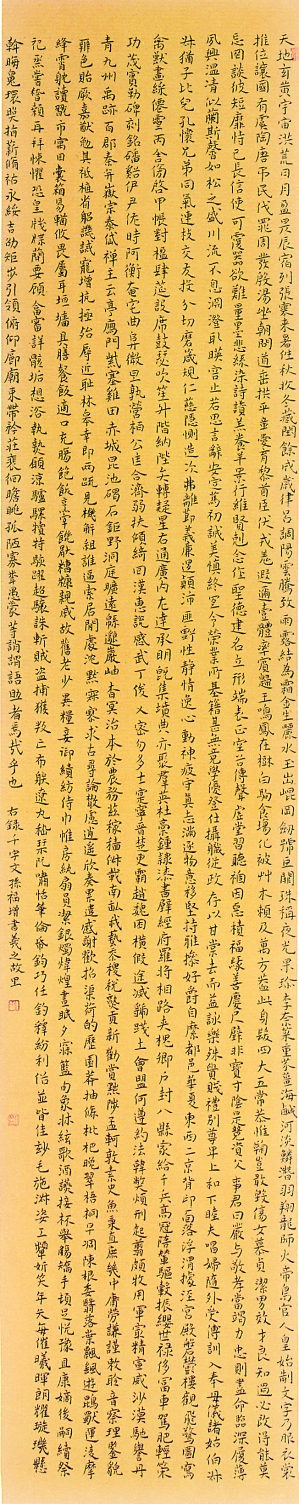 天地玄黃宇宙洪荒日月盈昃辰宿列張寒來暑往秋收冬藏閏餘成歲律呂調陽雲騰致雨露結為霜金生麗水玉出崑岡劍號巨闕珠稱夜光果珍李柰菜重芥薑海鹹河淡鱗潛羽翔龍師火帝鳥官人皇始制文字乃服衣裳
推位讓國有虞陶唐弔民伐罪周發殷湯坐朝問道垂拱平章愛育黎首臣伏戎羌遐邇壹體率賓歸王鳴鳳在樹白駒食場化被草木賴及萬方蓋此身髮四大五常恭惟鞠養豈敢毀傷女慕貞潔男效才良知過必改得能莫
忘罔談彼短靡恃己長信使可覆器欲難量墨悲絲染詩讚羔羊景行維賢剋念作聖德建名立形端表正空谷傳聲虛堂習聽禍因惡積福緣善慶尺璧非寶寸陰是競資父事君曰嚴與敬孝當竭力忠則盡命臨深履薄
夙興溫凊似蘭斯馨如松之盛川流不息淵澄取暎容止若思言辭安定篤初誠美慎終宜令榮業所基籍甚無竟學優登仕攝職從政存以甘棠去而益詠樂殊貴賤禮別尊卑上和下睦夫唱婦隨外受傅訓入奉母儀諸姑伯
叔猶子比兒孔懷兄弟同氣連枝交友投分切磨箴規仁慈隱惻造次弗離節義廉退顛沛匪虧性靜情逸心動神疲守真志滿逐物意移堅持雅操好爵自縻都邑華夏東西二京背邙面洛浮渭據涇宮殿盤鬱樓觀飛驚圖寫
禽獸畫綵仙靈丙舍傍啓甲帳對楹肆筵設席鼓瑟吹笙升階納陛弁轉疑星右通廣內左達承明既集墳典亦聚群英杜稾鍾隸漆書壁經府羅將相路夾槐卿戶封八縣家給千兵高冠陪輦驅轂振纓世祿侈富車駕肥輕策
功茂實勒碑刻銘磻溪伊尹佐時阿衡奄宅曲阜微旦孰營桓公匡合濟弱扶傾綺回漢惠說感武丁俊乂密勿多士寔寧晉楚更霸趙魏困橫假途滅虢踐土會盟何遵約法韓弊煩刑起翦頗牧用軍最精宣威沙漠馳譽丹
青九州禹跡百郡秦并嶽宗泰岱禪主云亭鴈門紫塞雞田赤城昆池碣石鉅野洞庭曠遠緜邈巖岫杳冥治本於農務茲稼穡俶載南畝我藝黍稷稅熟貢新勸賞黜陟孟軻敦素史魚秉直庶幾中庸勞謙謹敕聆音察理鑒貌
辨色貽厥嘉猷勉其祗植省躬譏誡寵增抗極殆辱近恥林皋幸即兩疏見機解組誰逼索居閑處沈默寂寥求古尋論散慮逍遙欣奏累遣慼謝歡招渠荷的歷園莽抽條枇杷晚翠梧桐早凋陳根委翳落葉飄颻遊鵾獨運凌摩
絳霄耽讀翫市寓目囊箱易輶攸畏屬耳垣墻具膳餐飯適口充腸飽飫烹宰飢厭糟糠親戚故舊老少異糧妾御績紡侍巾帷房紈扇員潔銀燭煒煌晝眠夕寐藍筍象牀絃歌酒讌接杯舉觴矯手頓足悅豫且康嫡後嗣續祭
祀烝嘗稽顙再拜悚懼恐惶牋牒簡要顧答審詳骸垢想浴執熱願涼驢騾犢特駭躍超驤誅斬賊盜捕獲叛亡布射遼丸嵇琴阮嘯恬筆倫紙鈞巧任釣釋紛利俗並皆佳妙毛施淑姿工顰妍笑年矢每催曦暉朗耀璇璣懸
斡晦魄環照指薪脩祜永綏吉劭矩步引領俯仰廊廟束帶矜莊裵徊瞻眺孤陋寡聞愚蒙等誚謂語助者焉哉乎也 右錄千字文孫福增書義之故里